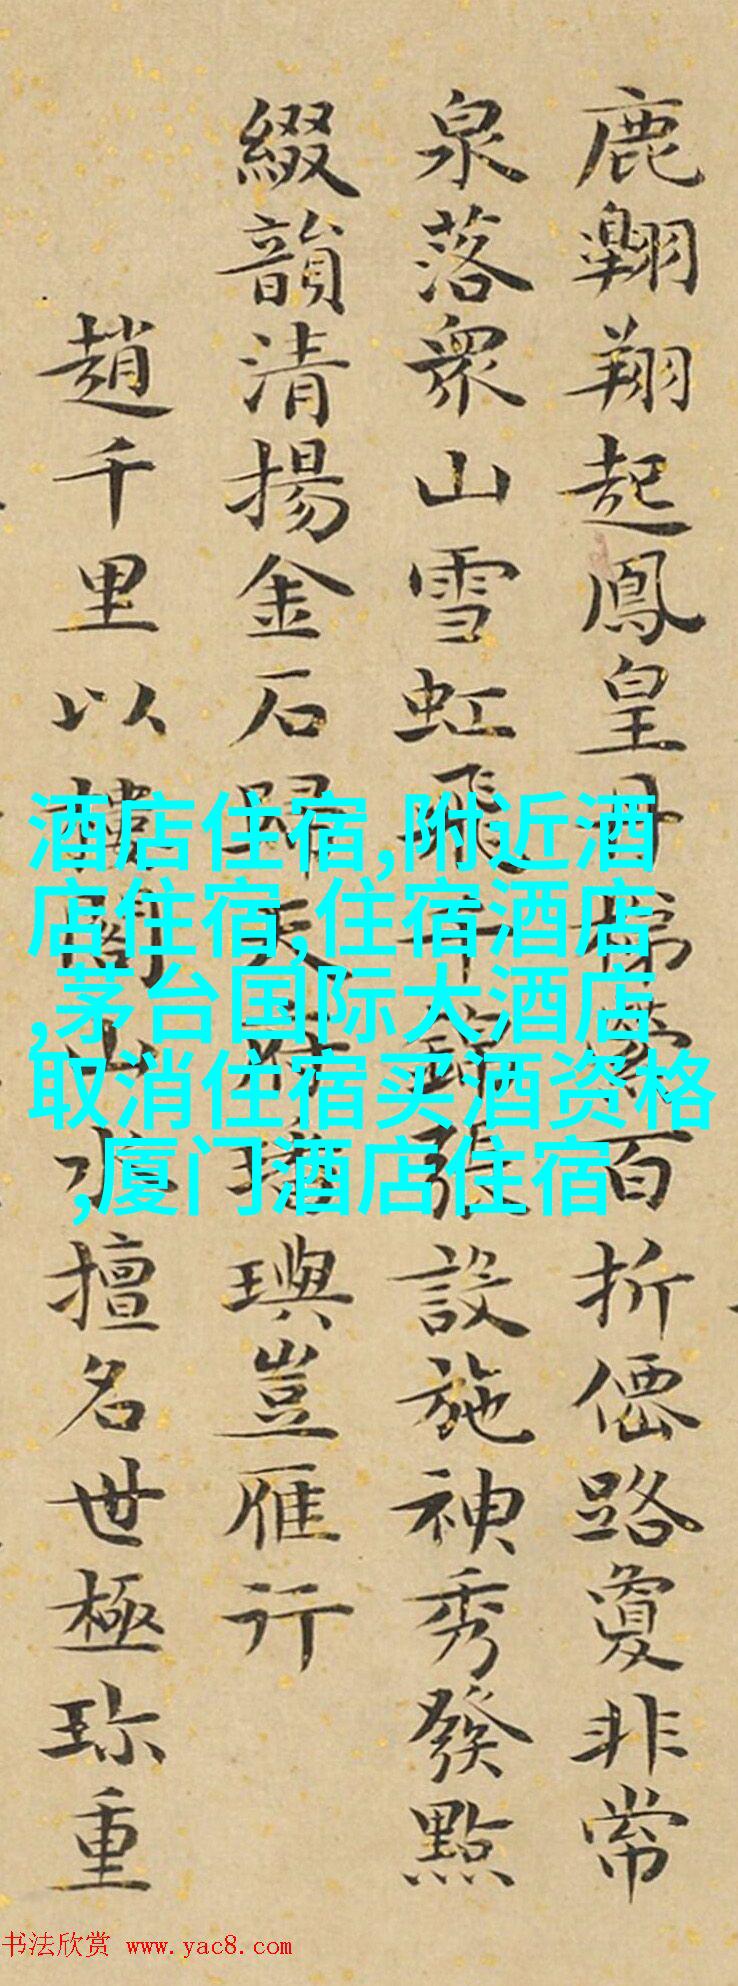 鹿翱翔起鳳皇丹梯百折僊路敻非常
泉落衆山雪虹飛千錦張設施神秀發點
綴韻清揚金石歸天璵豈雁行
趙千里以樓閣山水擅名世極珎重
酒店住宿,附近酒
店住宿,住宿酒店
,茅台国际大酒店
取消住宿买酒资格
,厦门酒店住宿
书法欣赏 www.yac8.com